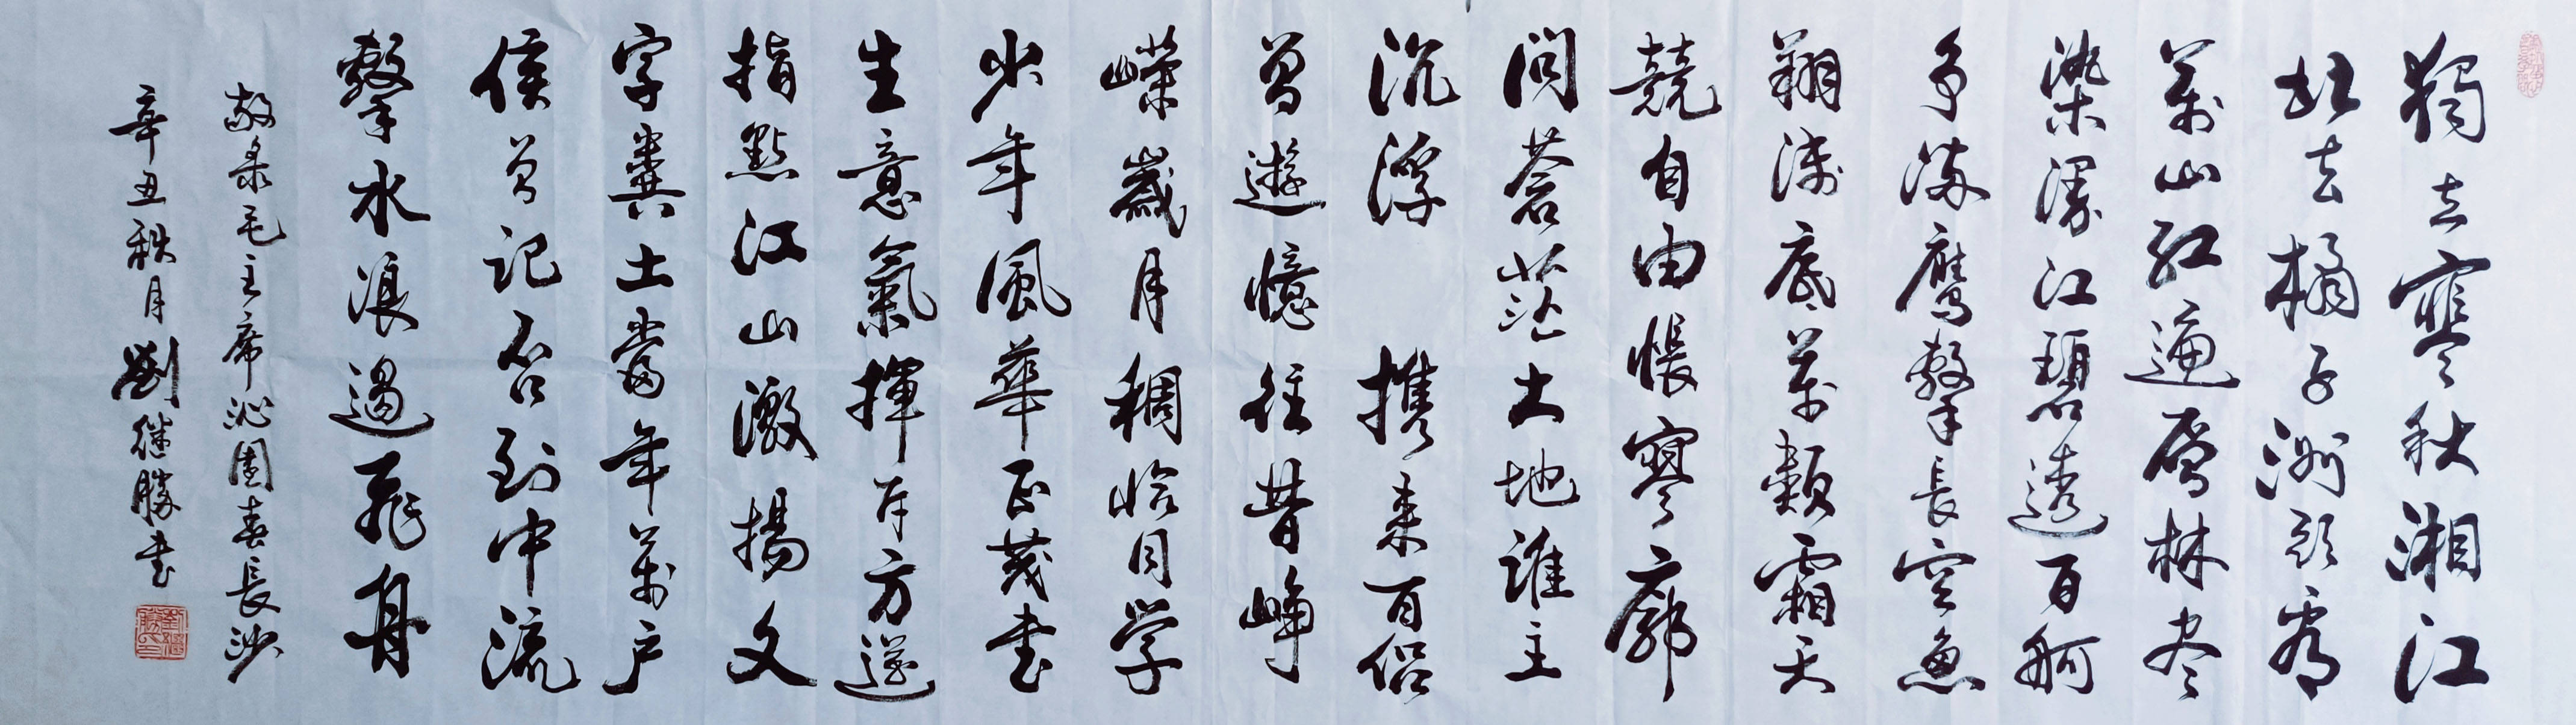 獨立寒秋湘江
北去橘子洲頭看
萬山紅遍層林盡
染漫江碧透百舸
爭流鷹擊長空魚
翔淺底萬類霜天
競自由悵寥廓
問蒼茫大地誰主
沉浮 携來百侣
曾遊憶往昔崢
嶸歲月稠恰同学
少年風華正茂書
生意氣揮斥方遒
指點江山激揚文
字糞土當年萬户
侯曾記否到中流
擊水浪遏飛舟
敬录毛主席沁園春長沙
辛丑秩月劉继勝書